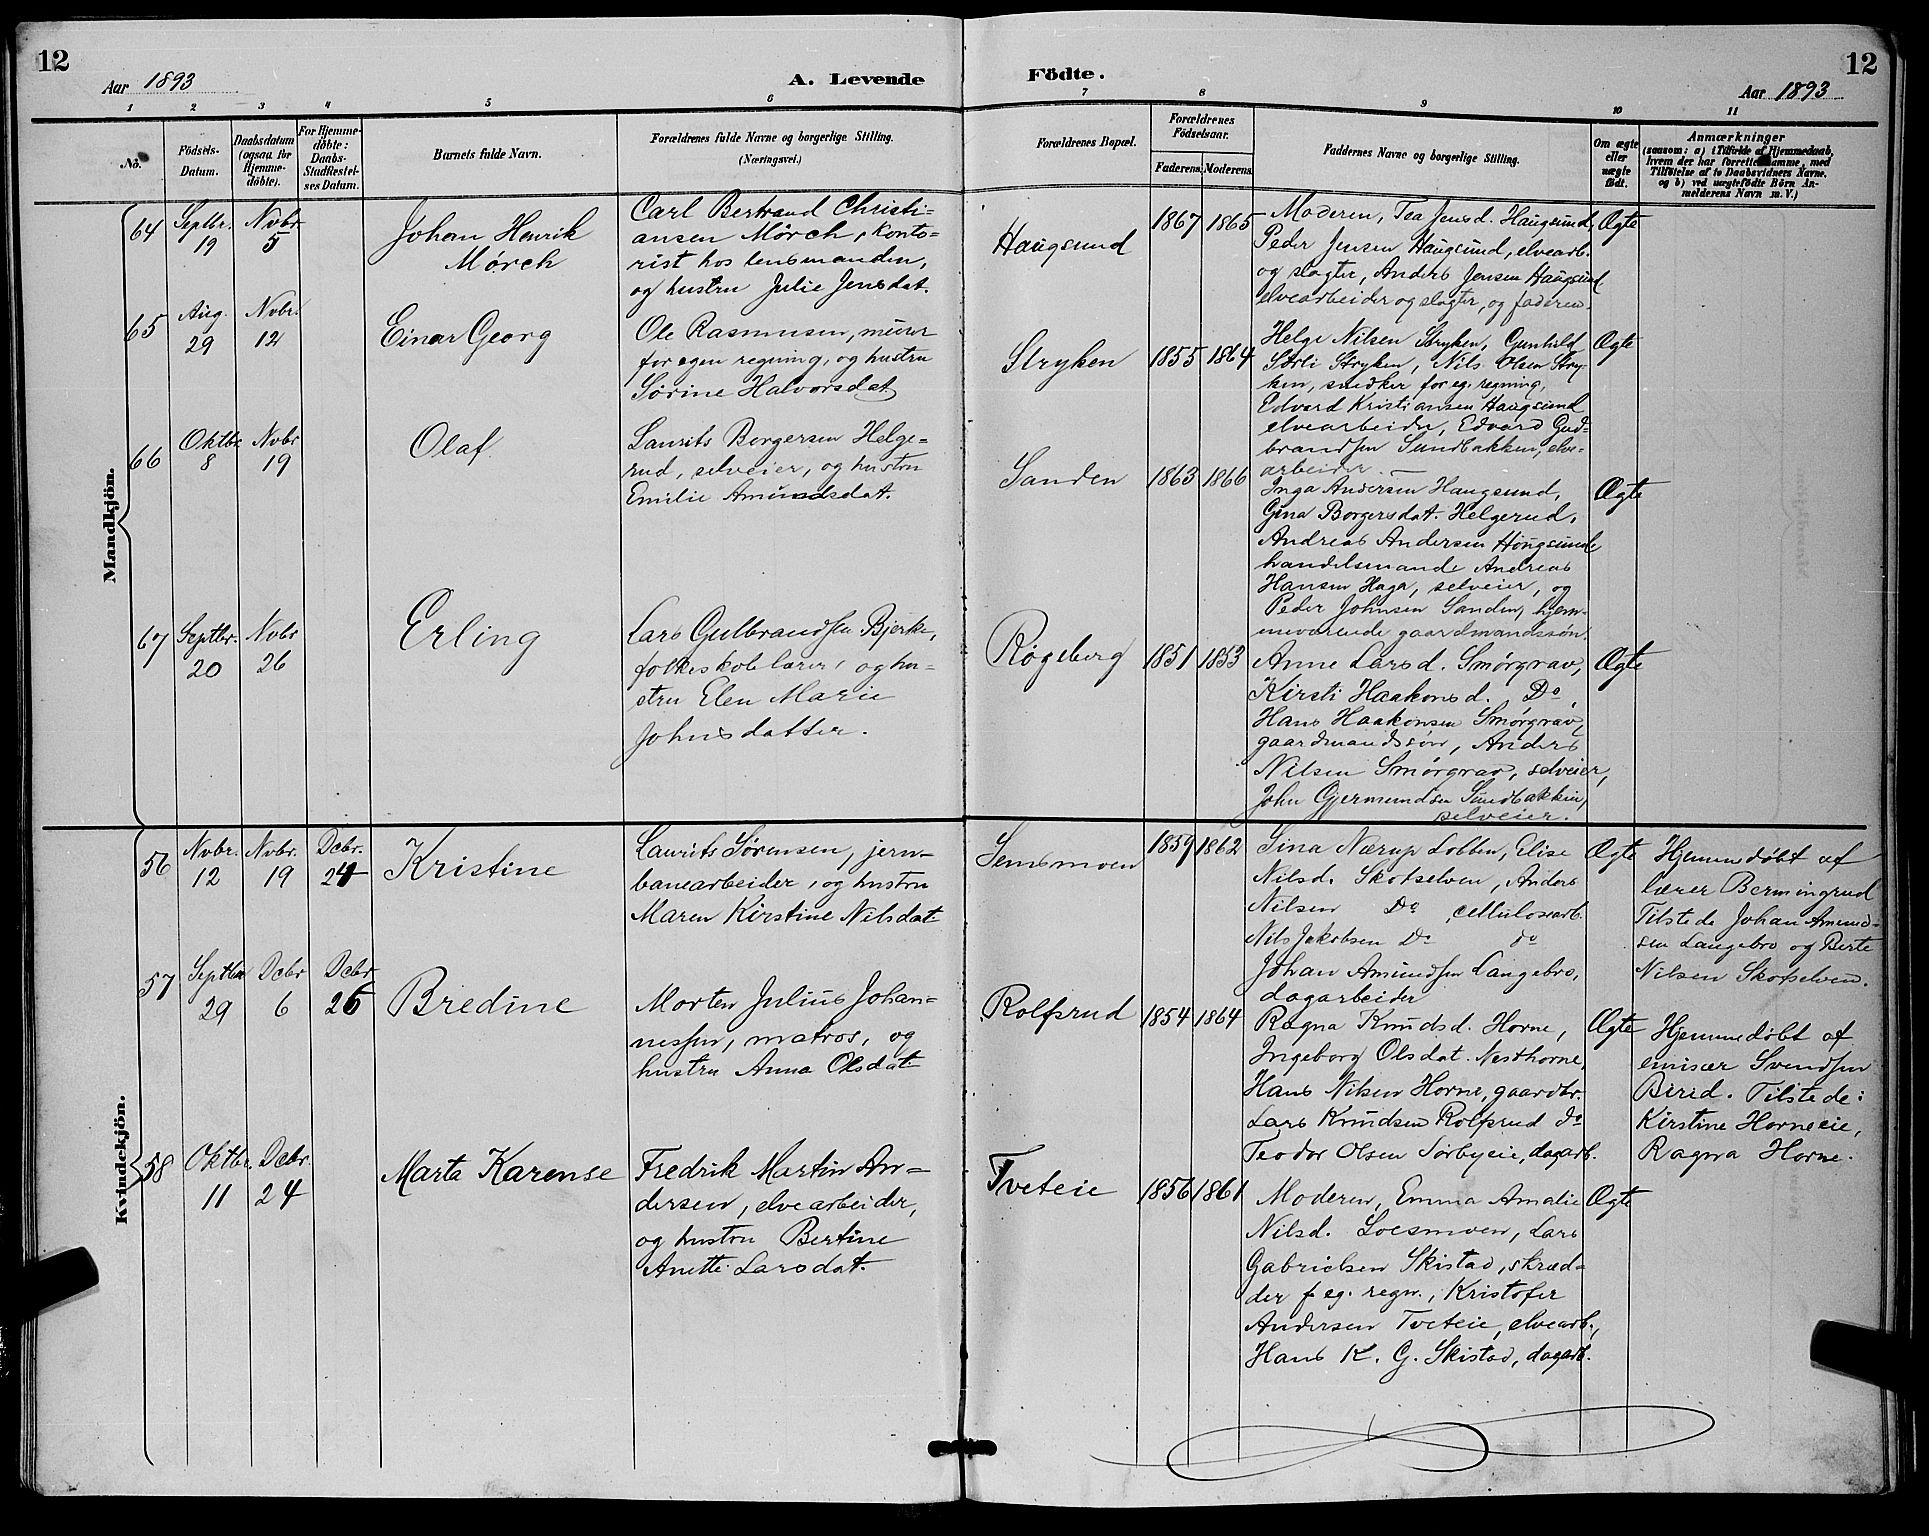 12
Aar 1893
A. Levende
Födte.
Aar 1893
12
1 2 3 4 5 6 7 8 9 10 11
No.
Födsels-
Datum.
Daabsdatum
(ogsaa for
Hjemme-
døbte).
For Hjemme-
døbte:
Daabs-
Stadfæstel-
ses Datum.
Barnets fulde Navn.
Forældrenes fulde Navne og borgerlige Stilling.
(Næringsvei.)
Forældrenes Bopæl.
Forældrenes
Födselsaar.
Faderens
Moderens
Faddernes Navne og borgerlige Stilling.
Om ægte
eller
uægte
födt.
Anmærkninger
(saasom: a) i Tilfælde af Hjemmedaab,
hvem der har forrettet samme, med
Tilföielse af to Daabsvidners Navne.
og b) ved uægtefödte Börn An-
melderens Navn m. V.)
Mandkjön.
64
Septbr.
19
Novbr
5
Johan Henrik
Mörch
Carl Bertrand Christi-
ansen Mörch, konto-
rist hos lensmanden,
og hustru Julie Jensdat.
Haugsund
1867 1865
Moderen, Tea Jensd. Haugsund,
Peder Jensen Haugsund, elvearb.
og slagter, Anders Jensen Haugsund
elvearbeider og slagter, og faderen.
Ægte
65
Aug.
29
Novbr.
12
Einar Georg
Ole Rasmusen, murer
for egen regning, og hustru
Sörine Halvorsdat
Stryken
1855 1864
Helge Nilsen Stryken, Gunhild
Sörli Stryken, Nils Olsen Stry-
ken, snedker for eg. regning,
Edvard Kristiansen Haugsund
elvearbeider, Edvard Gud-
brandsen Sundbakken, elve-
arbeider. —
Ægte
66
Oktbr
8
Novbr
19
Olaf
Laurits Borgersen Helge-
rud, selveier, og hustru
Emilie Amundsdat.
Sanden
1863 1866
Inga Andersen Haugsund,
Gina Borgersdat. Helgerud,
Andreas Andersen Hougsund
handelsmand Andreas
Hansen Haga, selveier, og
Peder Johnsen Sanden, hjem-
meværende gaardmandssön.
Ægte
67
Septbr.
20
Novbr
26
Erling
Lars Gulbrandsen Bjerke,
folkeskolelærer, og hu-
stru Elen Marie
Johnsdatter.
Rögeberg
1851 1853
Anne Larsd. Smörgrav,
Kirsti Haakonsd. Do,
Hans Haakonsen Smörgrav,
gaardmandssön, Anders
Nilsen Smörgrav, selveier,
John Gjermundsen Sundbakken,
selveier.
Ægte
Kvindekjön.
56
Novbr.
12
Novbr.
19
Debr.
24
Kristine
Laurits Sörensen, jern-
banearbeider, og hustru
Maren Kirstine Nilsdat
Semsmoen
1859 1862
Sina Nærup Lobben, Elise
Nilsd. Skotselven, Anders
Nilsen Do, cellulosearb.
Nils Jakobsen Do do
Johan Amundsen Langebro,
dagarbeider
Ægte
Hjemmedöbt af
lærer Bermingrud
Tilstede Johan Amund-
sen Langebro og Berte
Nilsen Skotselven.
57
Septbr
29
Debr
6
Debr
26
Bredine
Morten Julius Johan-
nessen, matros, og
hustru Anna Olsdat
Rolfsrud
1854 1864
Ragna Knudsd. Horne,
Ingeborg Olsdat. Nesthorne,
Hans Nilsen Horne, gaardbr.
Lars Knudsen Rolfsrud do
Teodor Olsen Sörbyeie, dagarb.
Ægte
Hjemmedöbt af
emisær Svendsen
Bired. Tilstede:
Kirstine Horneeie,
Ragna Horne.
58
Oktbr.
11
Debr.
24
Marta Karense
Fredrik Martin An-
dersen, elvearbeider,
og hustru Bertine
Anette Larsdat.
Tveteie
1856 1861
Moderen, Emma Amalie
Nilsd. Loesmoen, Lars
Gabrielsen Skistad, skræd-
der f eg. regn., Kristofer
Andersen Tveteie, elvearb.,
Hans K. G. Skistad, dagarb.
Ægte